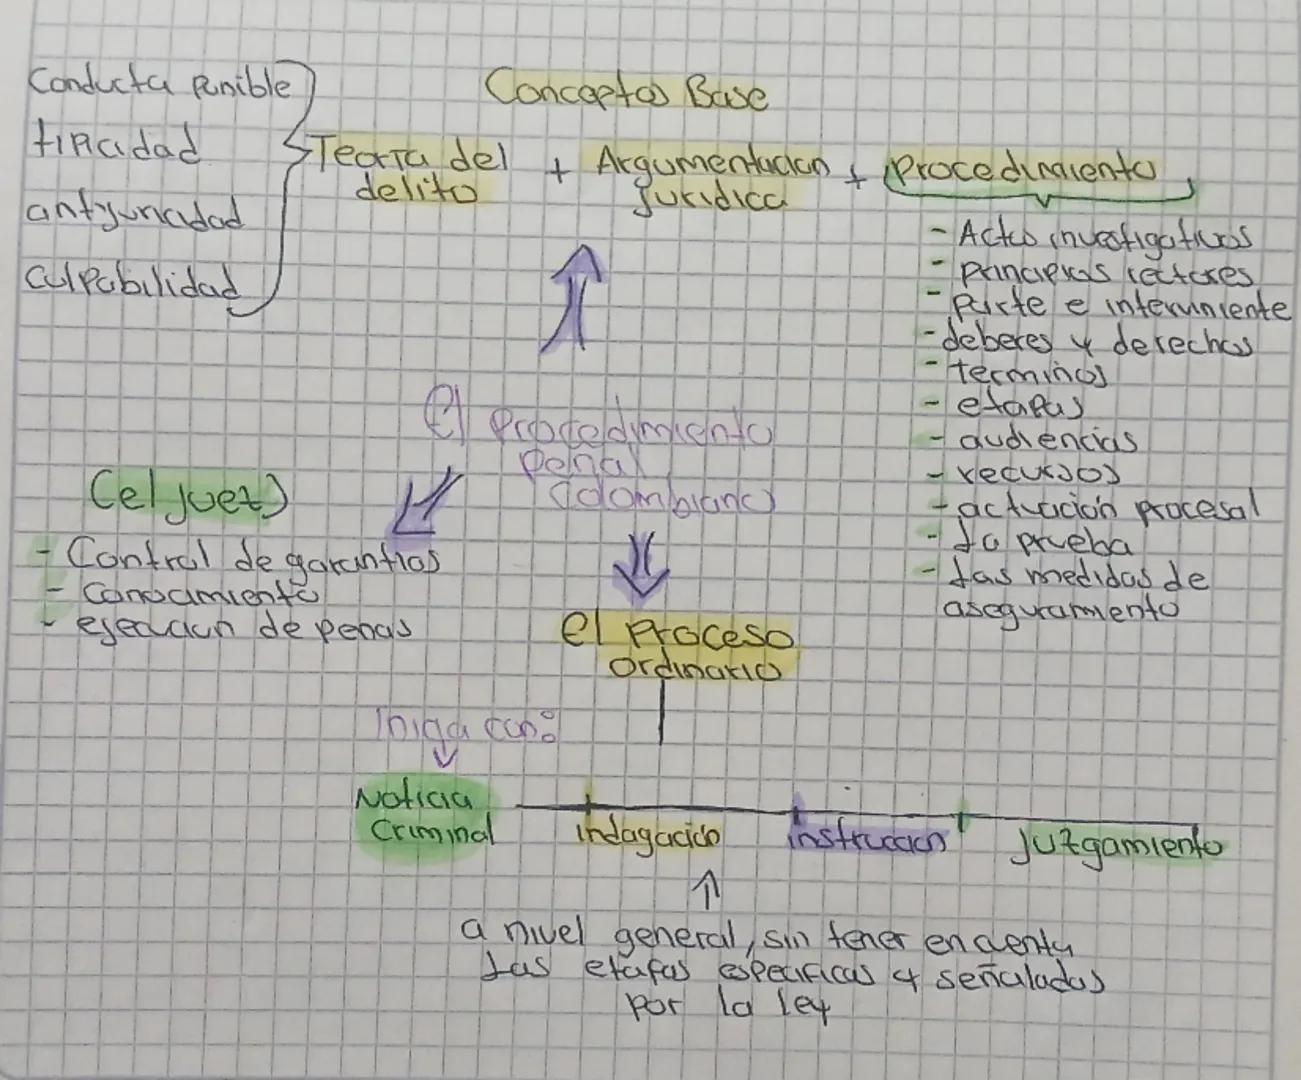 Conceptos Base
Conducta punible
tipicidad
antijuricidad
culpabilidad
Teoría del
delito
+
Argumentacion
Jurídica
+
Procedimiento
- Actos investigativos
- principios rectores
- parte e interviniente
- deberes y derechos
- terminos
- etapas
- audiencias
- recursos
- actuación procesal
- La prueba
- Las medidas de
aseguramiento
El Procedimiento
penal
Colombiano
(el juez)
- Control de garantías
- Conocimiento
- ejecucion de penas
El Proceso
Ordinario
Inicia con:
Noticia
Criminal
indagación
instruccion
juzgamiento
a nivel general, sin tener en cuenta
Las etapas especificas y señaladas
por la ley